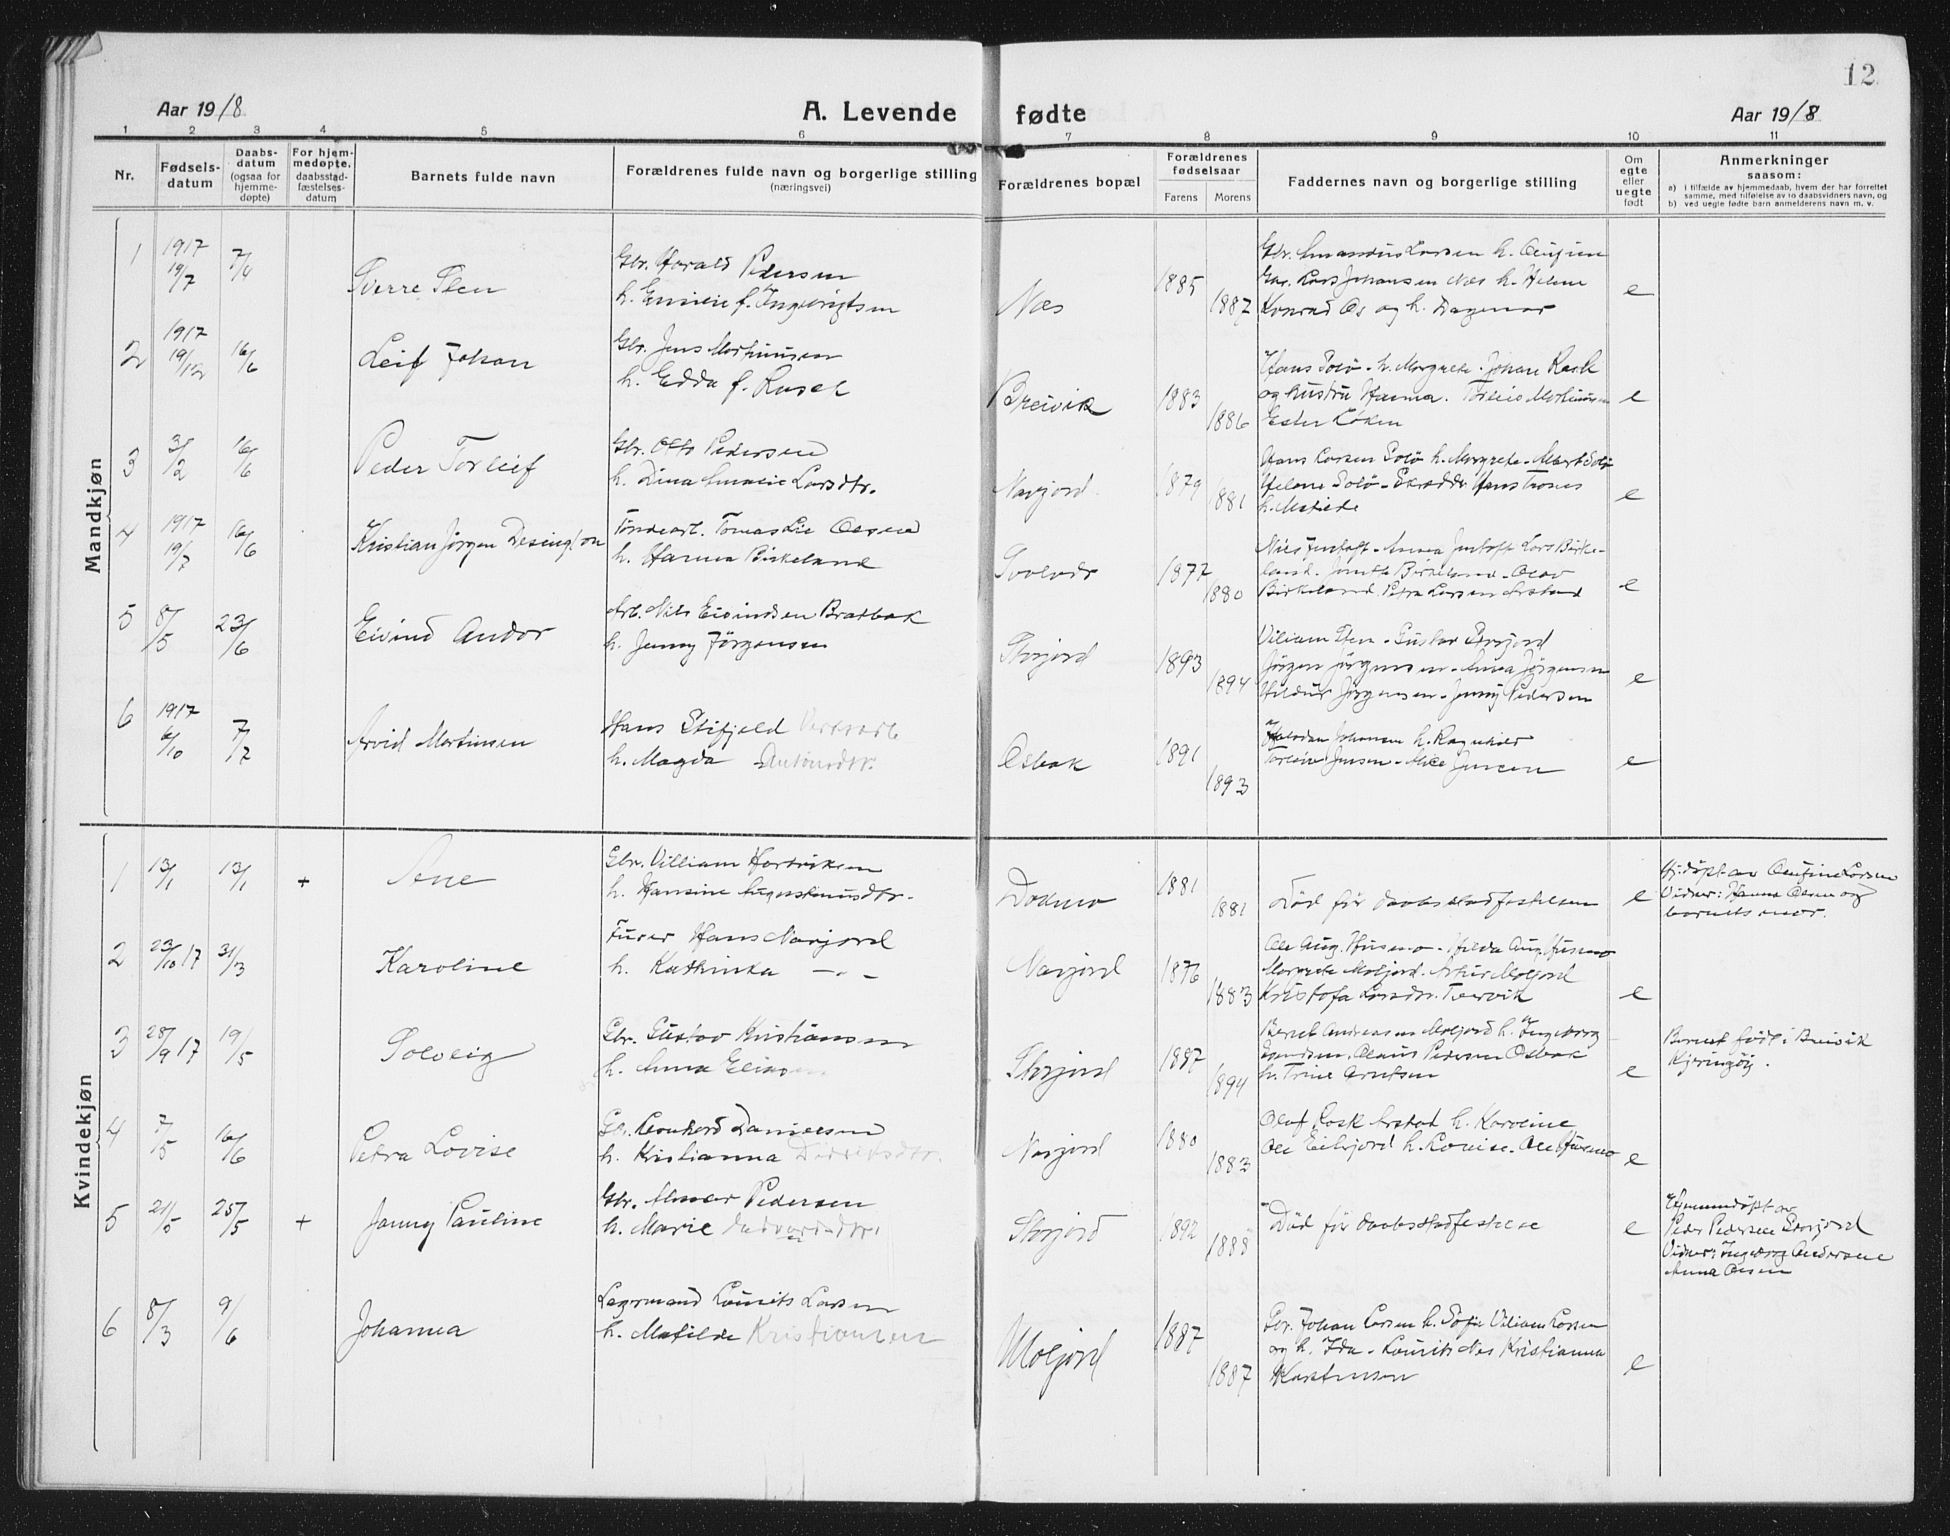 12
Aar 1918
A. Levende fødte
Aar 1918
1 2 3 4 5 6 7 8 9 10 11
Nr.
Fødsels-
datum
Daabs-
datum
(ogsaa for
hjemme-
døpte)
For hjem-
medøpte,
daabsstad-
fæstelses-
datum
Barnets fulde navn
Forældrenes fulde navn og borgerlige stilling
(næringsvei)
Forældrenes bopæl
Forældrenes
fødselsaar
Farens Morens
Faddernes navn og borgerlige stilling
Om
egte
eller
uegte
født
Anmerkninger
saasom:
a) i tilfælde av hjemmedaab, hvem der har forrettet
samme, med tilføielse av to daabsvidners navn, og
b) ved uegte født barn anmelderens navn m. v.
Mandkjøn
1 1917 19/7 7/4 Sverre Sten
Gbr. Harald Pedersen
h. Emilie f. Ingebrigtsen
Næs 1885 1887
Gbr. Amandus Larsen h.
Lars Johansen Næs h. Helene
Konrad Os og h. Dagmar
e
2 1917 19/12 16/6 Leif Johan
Gbr. Jens Mortinusen
h. Edda f. Rusel
Breivik 1883 1886
Hans Solö - h. Margrete. Johan Rask
og hustru Hanna. Mortinusen
Ester Löken
e
3 3/2 16/6 Peder Torleif
Gbr. Otto Pedersen
h. Dina Amalie Larsdtr.
Navjord 1879 1881
Hans Larsen Solö h. Margrete - Albert Solö
Helene Solö - Hans
h. Matilde
e
4 1917 19/7 16/6 Kristian Jörgen Desington
Töndearb. Tomas Lie Olsen
h. Hanna Birkeland
Svolvær 1877 1880
Nils Jentoft - Anna Jentoft Lars Birke-
land. Birkeland - Olav
Birkeland. Petra Larsen Arstad
e
5 8/5 23/6 Eivind Andor
Arb. Nils Eivindsen Bratbak
h. Jenny Jörgensen
Storjord 1893 1894
Viliam Sten - Gustav Storjord
Jörgen Jörgensen - Anna Jörgensen
Hildur Jörgensen - Jenny Pedersen
e
6 1917 6/10 7/7 Arvid Mortinsen
Hans Stifjeld
h. Magda Antonsdtr.
Osbak 1891 1893
Halvdan Johansen h. Ragnhild
Torleiv Jensen - Alice Jensen
e
Kvindekjøn
1 13/1 13/1 + Ane
Gbr. Villiam Hartviksen
h. Hansine Augustinusdtr.
Dokmo 1881 1881
Död för daabsstadfestelsen
e
Hj.döpt av Larsen
Vidner: Hanna Olsen og
barnets mor.
2 23/10 17 31/3 Karoline
Furer Hans Navjord
h. Kathinka — „ —
Navjord 1876 1883
Ole Aug. Husmo - Hilda Aug. Husmo
Margrete Moljord. Artur Moljord
Kristofa Larsdtr. Tvervik
e
3 28/9 17 19/5 Solveig
Gbr. Gustav Kristiansen
h. Anna Eliasen
Storjord 1887 1894
Bernt Andreasen Moljord h. Ingeborg
Olaus Pedersen Osbak
h. Trine Arntsen
e
Barnet född i Breivik
Kjeringöy.
4 7/5 16/6 Petra Lovise
Gbr. Leonhard Danielsen
h. Kristianna
Navjord 1880 1883
Olaf Rask Arstad h. Karoline
Ole Eilsjord h. Lovise. Ole Husmo
e
5 21/5 25/5 + Janny Pauline
Gbr. Almar Pedersen
h. Marie Edvardsdtr.
Storjord 1892 1888
Död för daabsstadfestelse
e
Hjemmedöpt av
Peder Pedersen Storjord
Vidner: Ingeborg Andersen
Anna Olsen
6 8/3 9/6 Johanna
Lagermand Laurits Larsen
h. Matilde Kristiansen
Moljord 1887 1887
Gbr. Johan Larsen h. Sofie Viliam Larsen
og h. Ida - Laurits Næs Kristianna
Karstensen
e